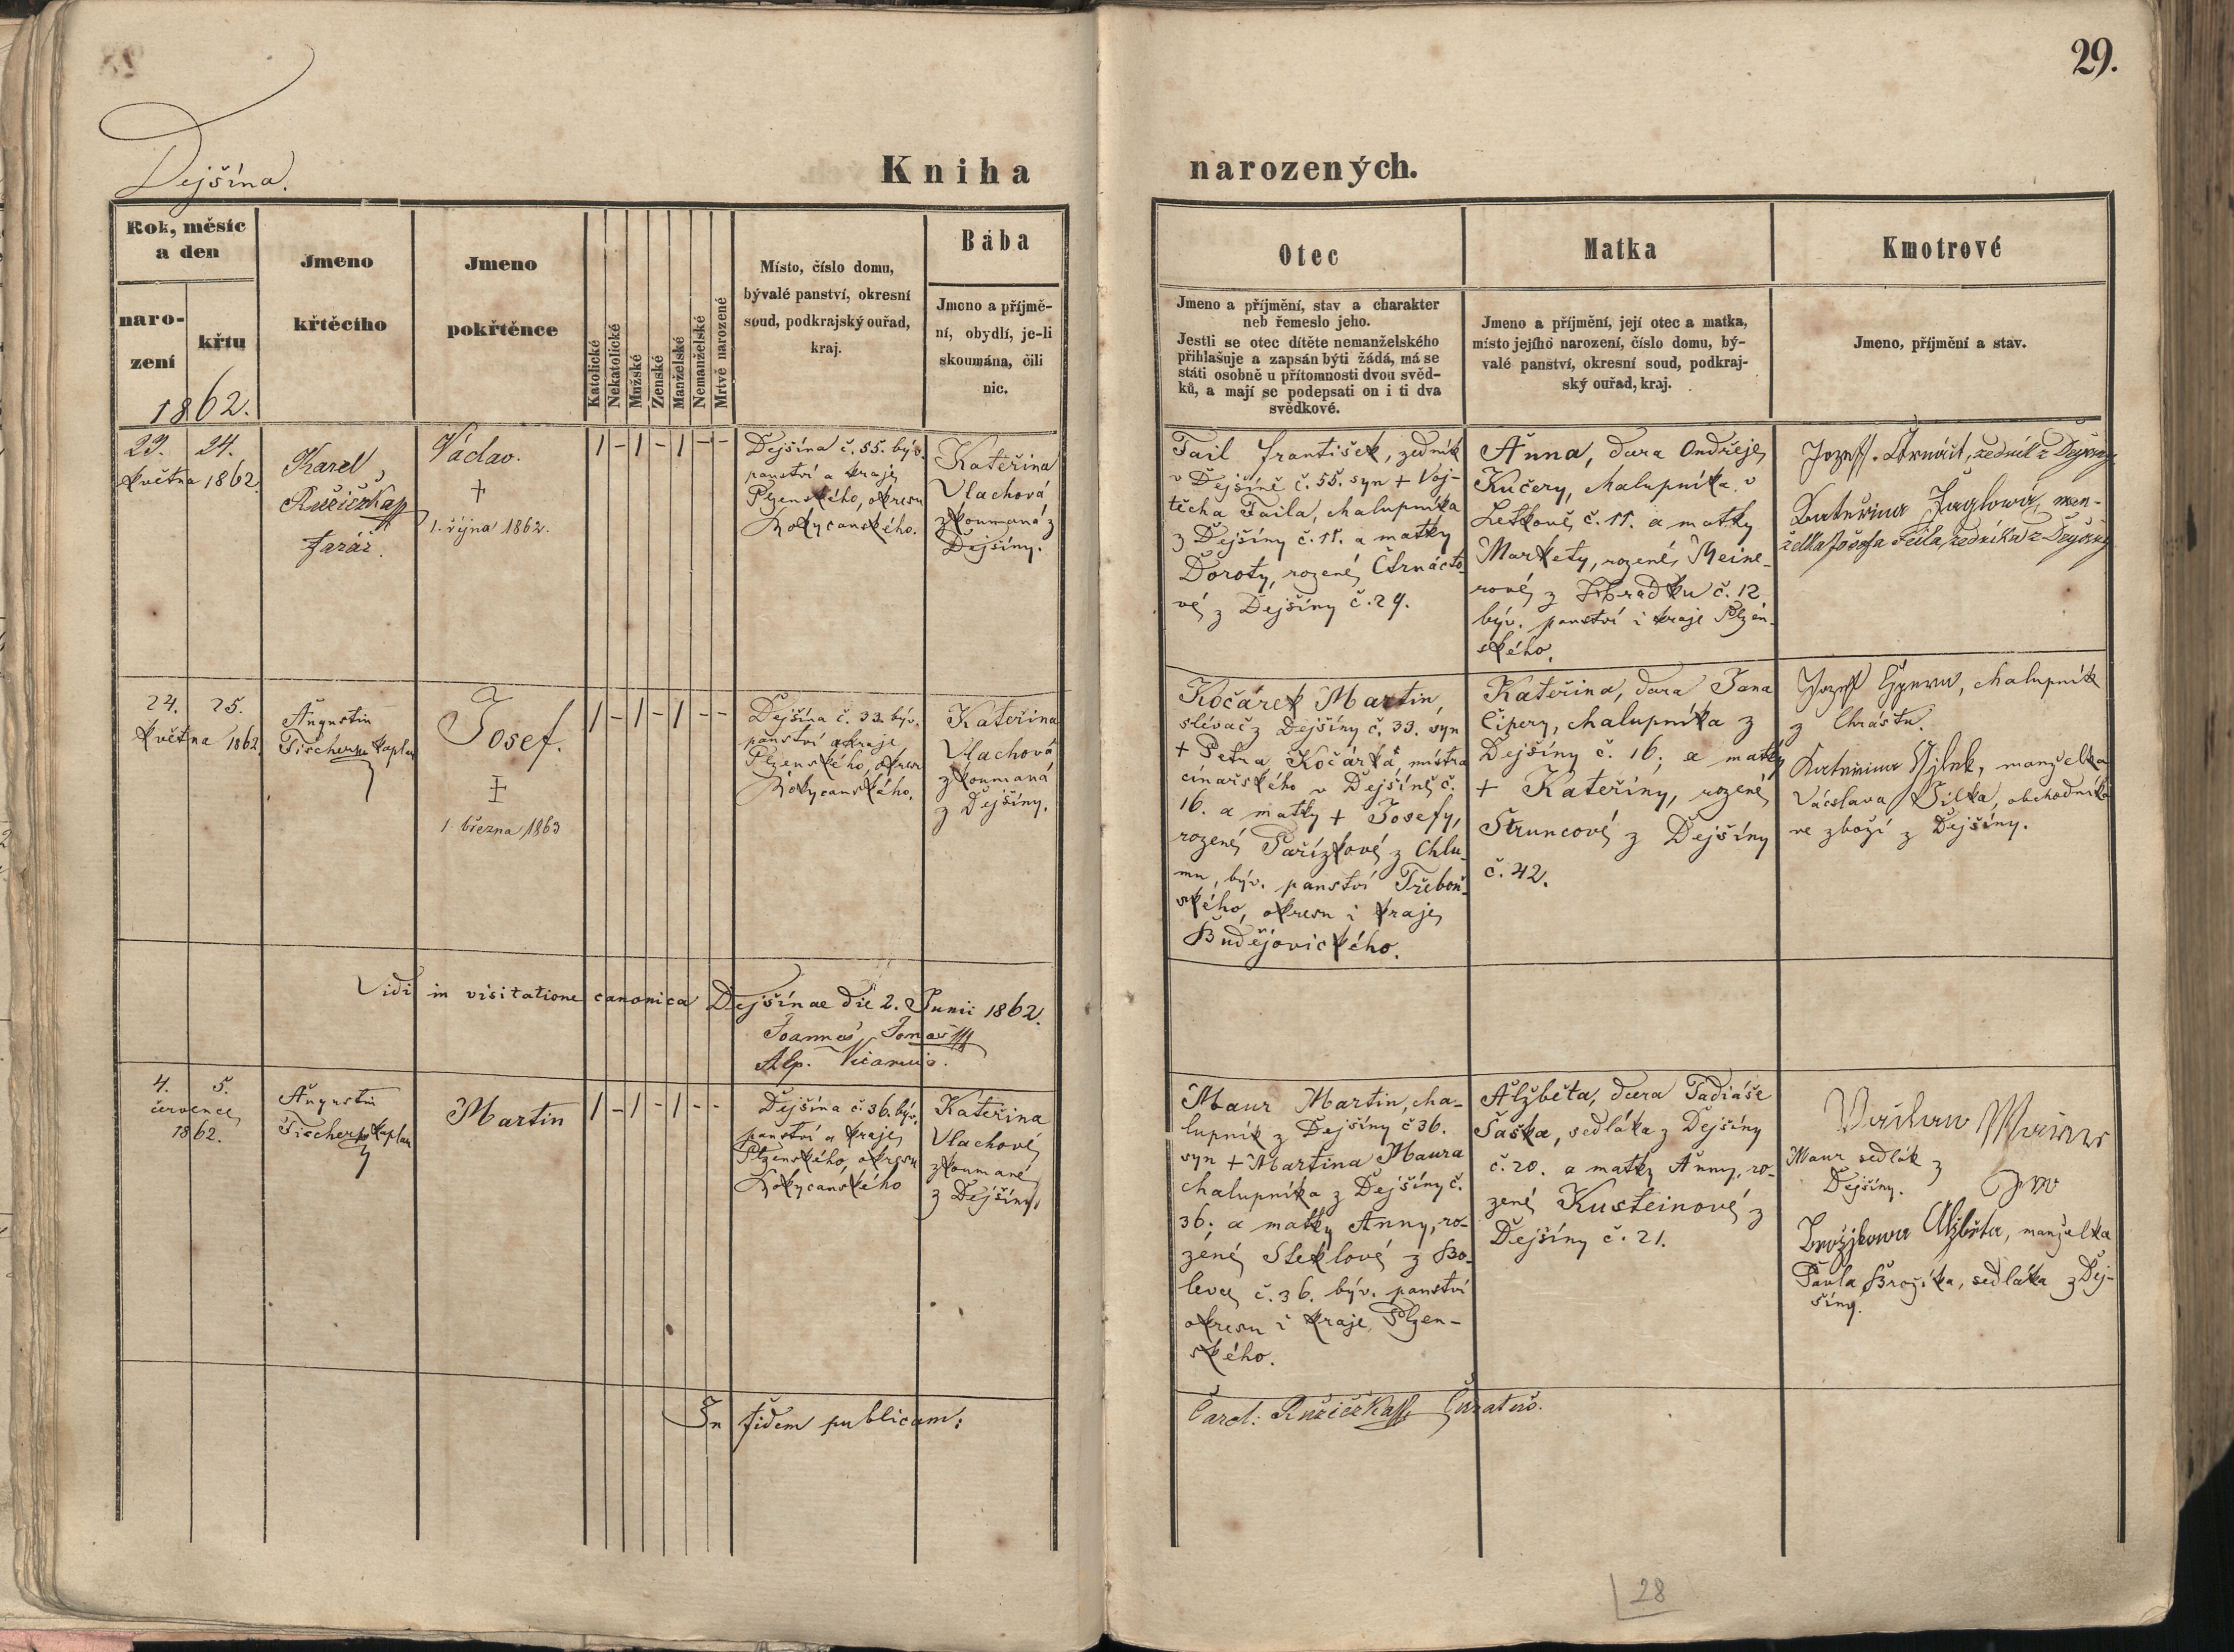 29.
Dejšína.
Kniha narozených.
Rok, měsíc
a den
naro-
zení
křtu
1862.
Jmeno
křtěcího
Jmeno
pokřtěnce
Katolické
Nekatolické
Mužské
Ženské
Manželské
Nemanželské
Mrtvě narozené
Místo, číslo domu,
bývalé panství, okresní
soud, podkrajský ouřad,
kraj.
Bába
Jmeno a příjmě-
ní, obydlí, je-li
skoumána, čili
nic.
Otec
Jmeno a příjmění, stav a charakter
neb řemeslo jeho.
Jestli se otec dítěte nemanželského
přihlašuje a zapsán býti žádá, má se
státi osobně u přítomnosti dvou svěd-
ků, a mají se podepsati on i ti dva
svědkové.
Matka
Jmeno a příjmění, její otec a matka,
místo jejího narození, číslo domu, bý-
valé panství, okresní soud, podkraj-
ský ouřad, kraj.
Kmotrové
Jmeno, příjmění a stav.
23. 24.
května 1862.
Karel
Růžička
farář.
Václav.
+
1. října 1862.
1 - 1 - 1 - -
Dejšína č. 55. býv.
panství a kraje
Plzenského, okresu
Rokycanského.
Kateřina
Vlachová
zkoumaná z
Dejšíny.
Tail František, zedník
v Dejšíně č. 55. syn + Voj-
těcha Taila, chalupníka
z Dejšíny č. 11. a matky
Doroty, rozené Čtrnácto-
vé z Dejšíny č. 29.
Anna, dcra Ondřeje
Kučery, chalupníka v
Letkově č. 11. a matky
Markety, rozené Reine-
rové z Hrádku č. 12
býv. panství i kraje Plzen-
ského.
Jozeff. Čtrnáct, zedník z Dejšiny
Kateřina Taylowá, man-
želka Josefa Teila, zedníka z Dejšiny
24. 25.
května 1862
Augustin
Fischer kaplan
Josef.
‡
1. března 1863
1 - 1 - 1 - -
Dejšína č. 33. býv.
panství a kraje
Plzenského, okresu
Rokycanského.
Kateřina
Vlachová
zkoumaná
z Dejšíny.
Kočárek Martin,
slévač z Dejšíny č. 33. syn
+ Petra Kočárka, mistra
cínařského v Dejšíně č.
16. a matky + Josefy,
rozené Pařízkové z Chlu-
mu, býv. panství Třeboň-
ského, okresu i kraje
Budějovického.
Kateřina, dcra Jana
Čipery, chalupníka z
Dejšíny č. 16; a matky
+ Kateřiny, rozené
Struncové z Dejšíny
č. 42.
Jozeff Čipera, chalupník
z Chrástu.
Kateřina manželka
Vácslava Jílka, obchodníka
ve zboží z Dejšíny.
Vidi in visitatione canonica Dejšínae die 2. Junii 1862.
Joannes
Vicarius.
4. 5.
července
1862.
Augustin
Fischer kaplan
Martin
1 - 1 - 1 - -
Dejšína č. 36. býv.
panství a kraje
Plzenského, okresu
Rokycanského
Kateřina
Vlachové
zkoumané
z Dejšíny,
Maur Martin, cha-
lupník z Dejšíny č 36.
syn + Martina Maura
chalupníka z Dejšíny č.
36; a matky Anny, ro-
zené Steklové z Bo-
levce č. 36. býv. panství
okresu i kraje Plzen-
ského.
Alžběta, dcera Tadiáše
Šaška, sedláka z Dejšíny
č. 20. a matky Anny, ro-
zené Kusteinové z
Dejšíny č. 21.
Maur sedlák z
Dejšíny.
Alžběta, manželka
Pavla Brožíka, sedláka z Dej-
šíny.
In fidem publicam:
Carol: Růžička Curatus.
28